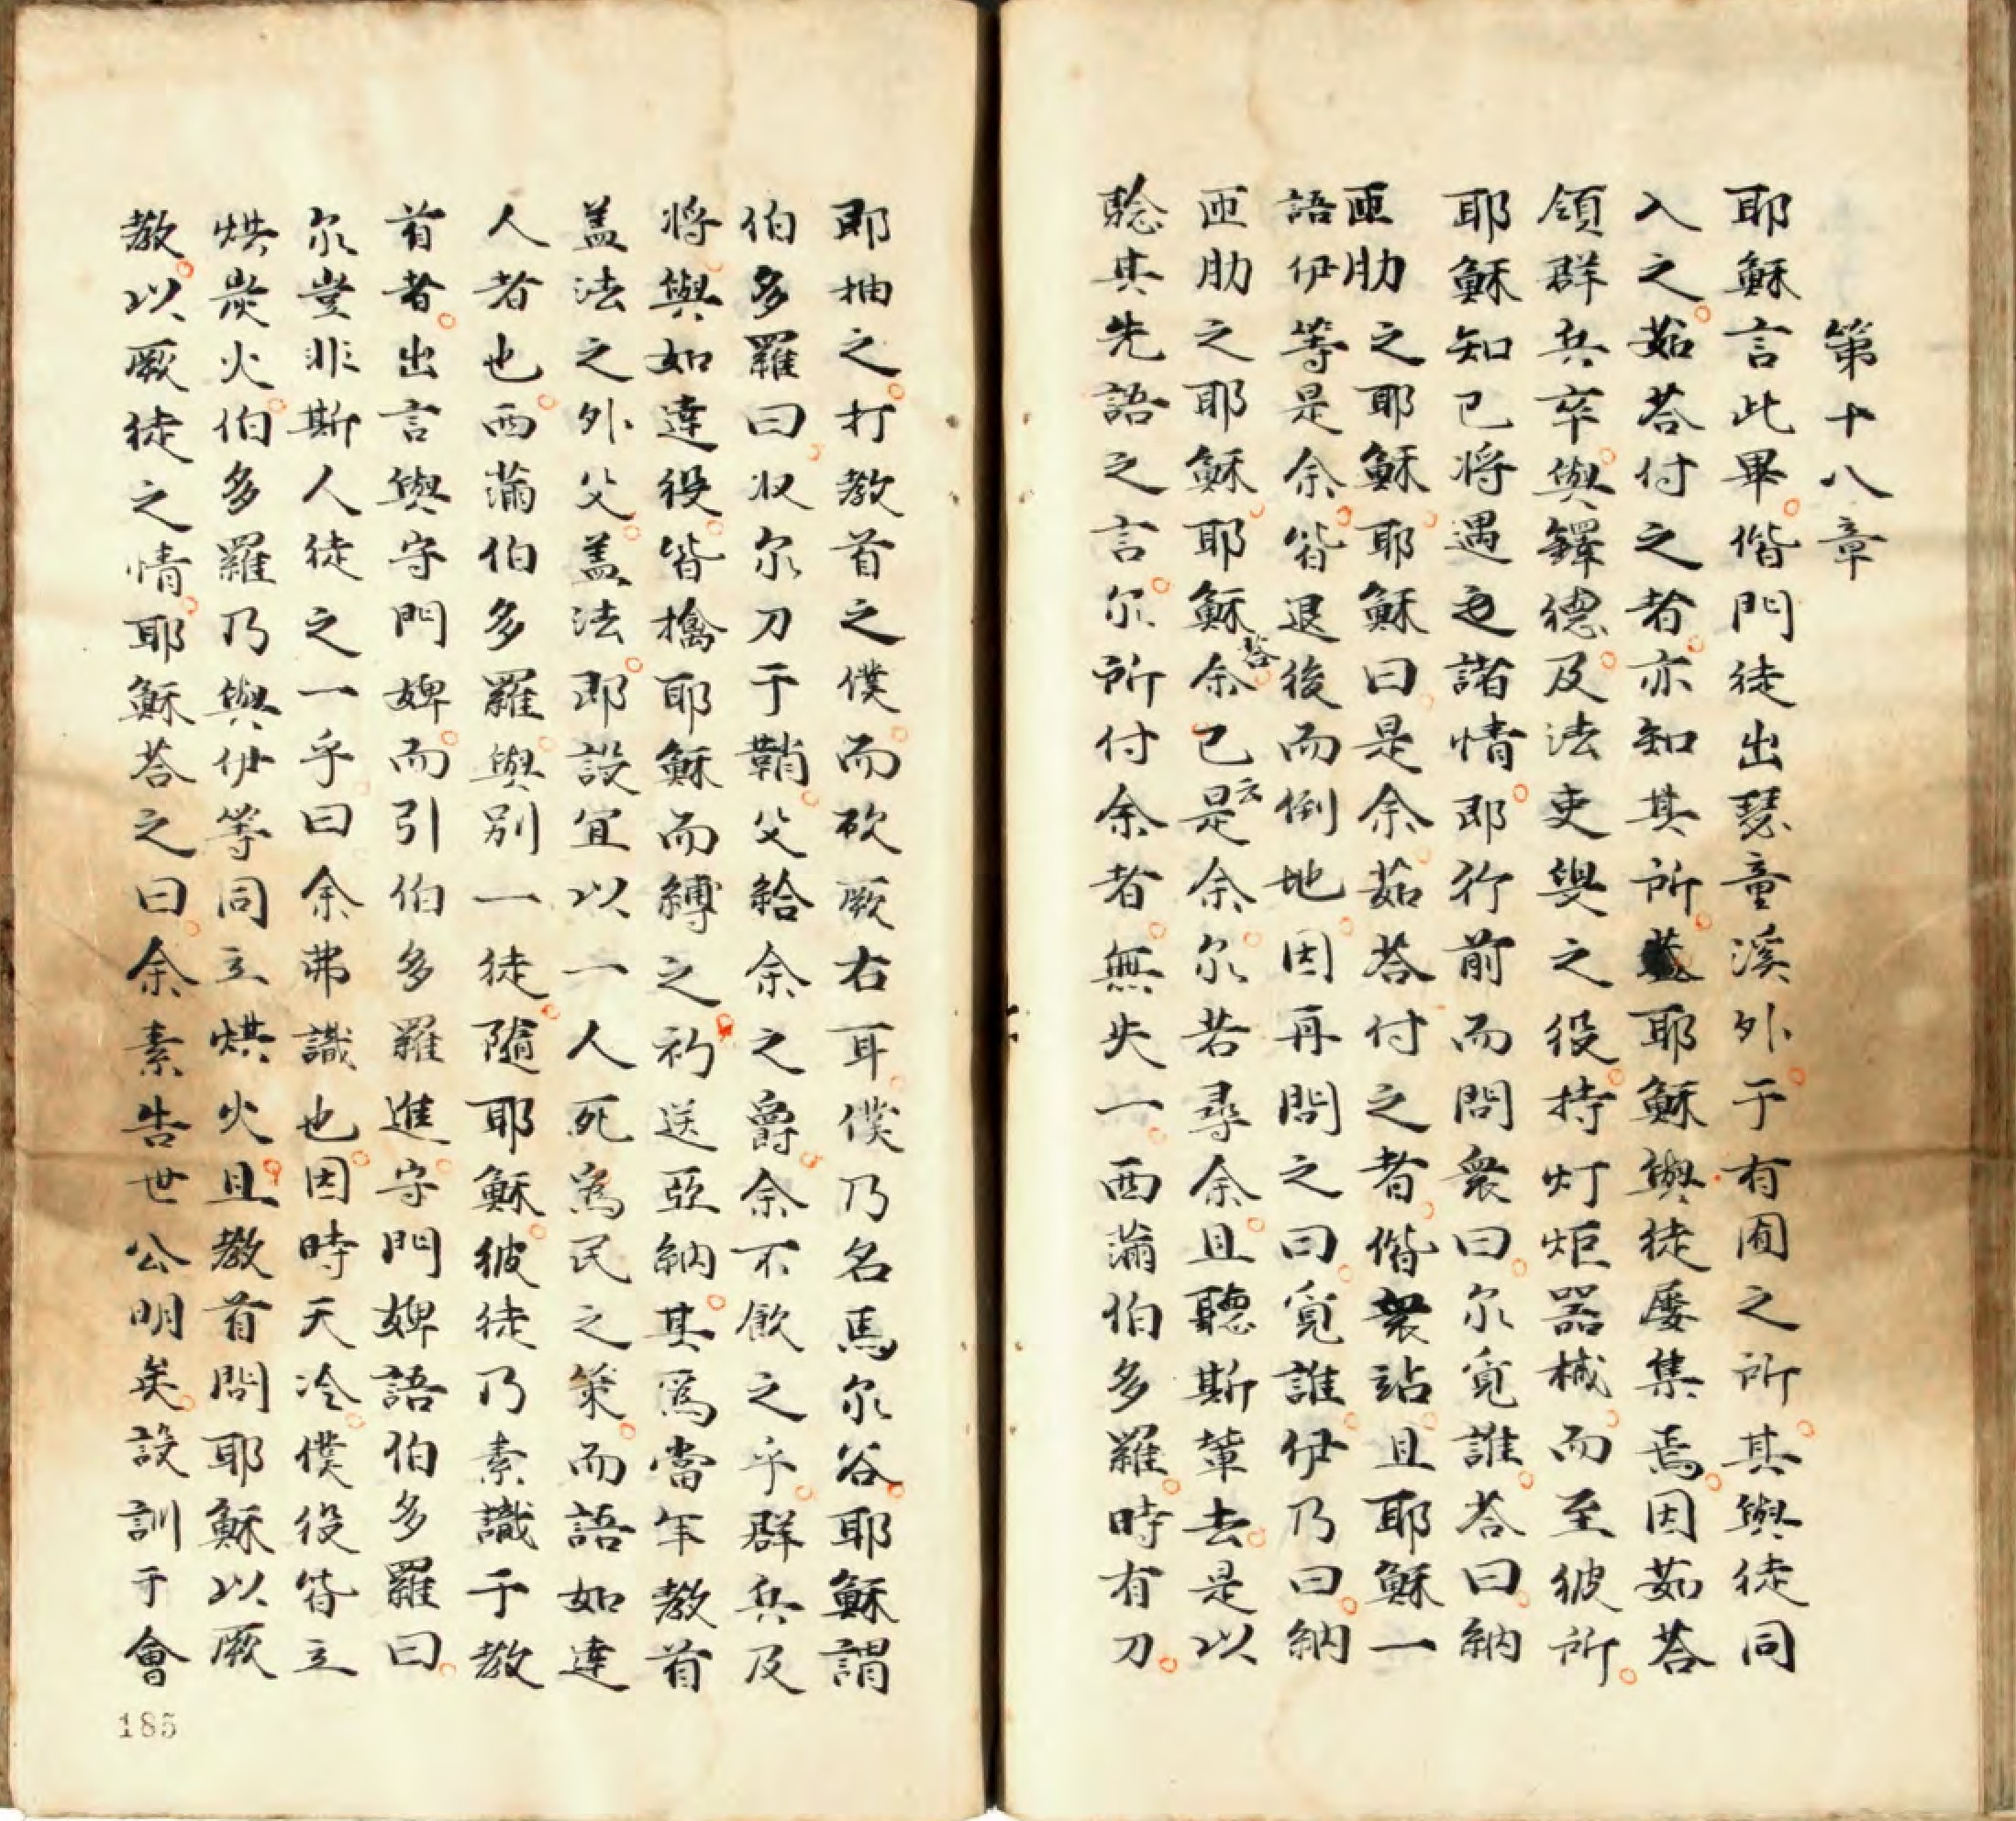 第十八章
耶穌言此畢偕門徒出瑟童溪外于有囿之所其與徒同
入之茹荅付之者亦知其所耶穌與徒屡集焉因茹荅
領群兵卒與鐸德及法吏與之役持灯炬器械而至彼所
耶穌知已將遇之諸情即行前而問衆曰尓覓誰荅曰納
匝肋之耶穌耶穌曰是余茹荅付之者偕衆站且耶穌一
語伊等是余皆退後而倒地因再問之曰覓誰伊乃曰納
匝肋之耶穌耶穌荅余已云是余尓若尋余且聽斯輩去是以
騐其先語之言尓所付余者無失一西滿伯多羅時有刀
即抽之打教首之僕而砍厥右耳僕乃名馬尓谷耶穌謂
伯多羅曰收尓刀于鞘父給余之爵余不飲之乎群兵及
將與如達役皆擒耶穌而縛之初送亞納其為當年教首
盖法之外父盖法即設宜以一人死為民之策而語如達
人者也西滿伯多羅與別一徒隨耶穌彼徒乃素識于教
首者出言與守門婢而引伯多羅進守門婢語伯多羅曰
尓豈非斯人徒之一乎曰余弗識也因時天冷僕役皆立
烘炭火伯多羅乃與伊等同立烘火且教首問耶穌以厥
教以厥徒之情耶穌荅之曰余素告世公明矣設訓于會
185